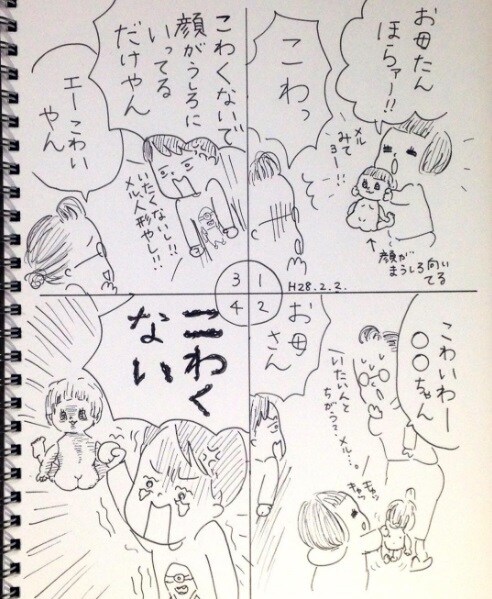 お母たん
ほらァー!!
メル
みて
ヨー!!
顔が
まうしろ向い
てる
こわっ
H28.2.2.
1
2
3
4
こわいわー
〇〇ちゃん
お母
さん
こわくないで
顔がうしろに
いってる
だけやん
いたくないし!!
メル人形やし!!
エーこわい
やん
こわく
ない